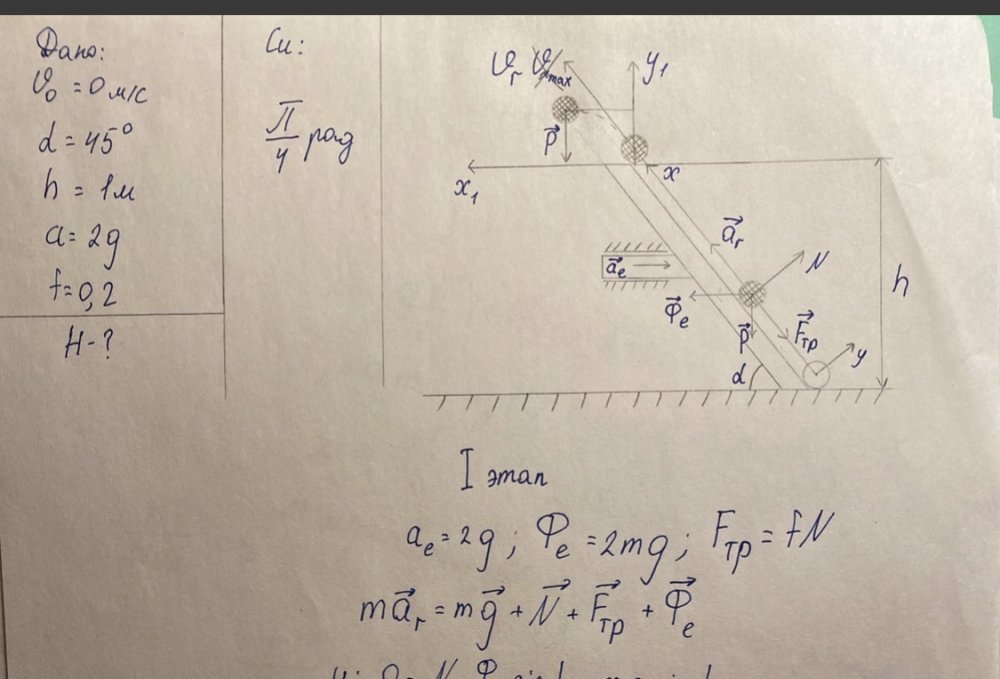 Дано:
V₀ = 0 м/с
α = 45°
h = 1м
a = 2g
f = 0,2
H - ?
Си:
π/4 рад
Vᵣ
max
y₁
P⃗
x₁
x
a⃗ᵣ
a⃗ₑ
N
Φ⃗ₑ
P⃗
F⃗тр
h
α
y
I этап
aₑ = 2g ; Φₑ = 2mg ; Fтр = fN
ma⃗ᵣ = mg⃗ + N⃗ + F⃗тр + Φ⃗ₑ